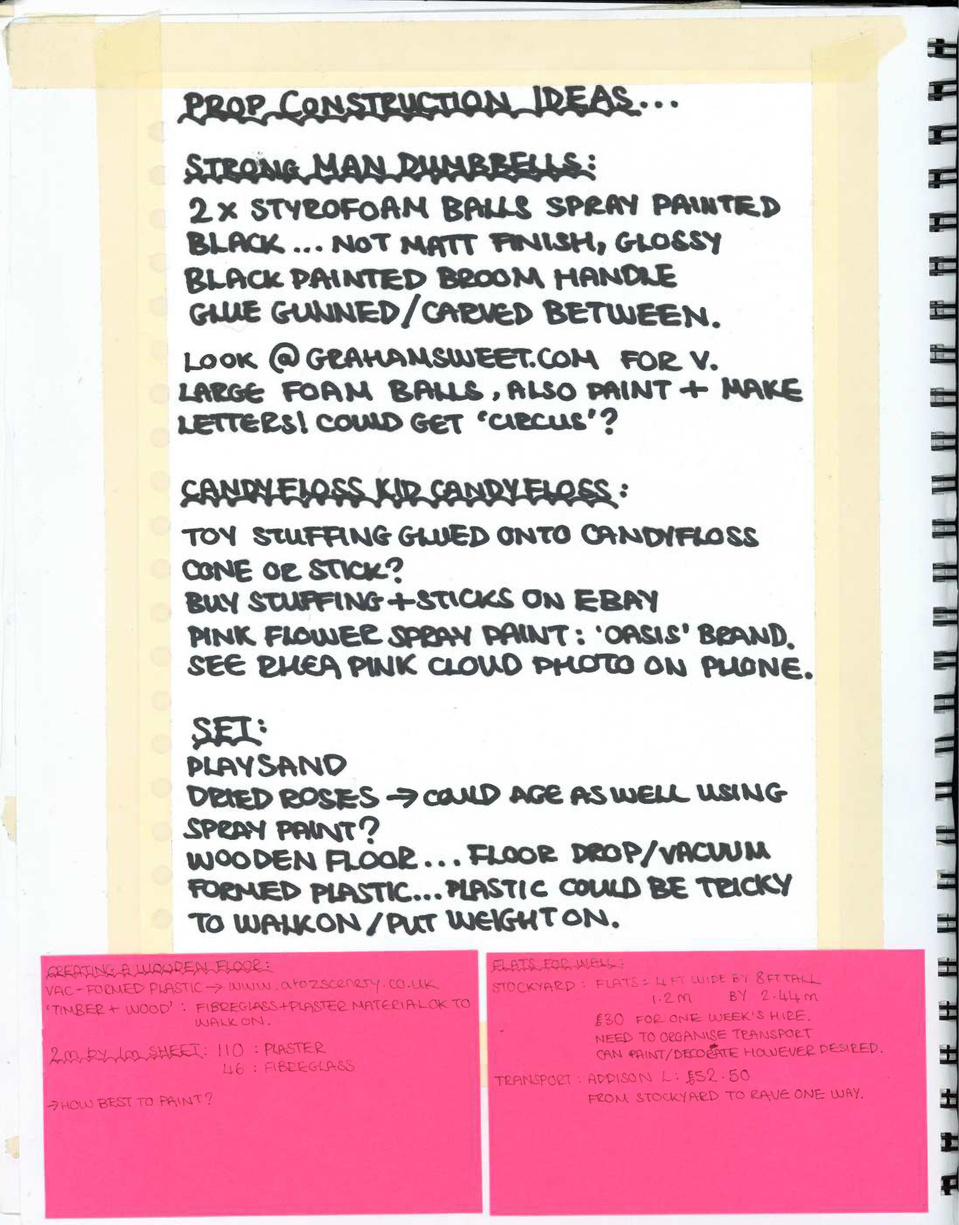 PROP CONSTRUCTION IDEAS...
STRONG MAN DUMBBELLS:
2 x STYROFOAM BALLS SPRAY PAINTED
BLACK... NOT MATT FINISH, GLOSSY
BLACK PAINTED BROOM HANDLE
GLUE GUNNED/CARVED BETWEEN.
LOOK @ GRAHAMSWEET.COM FOR V.
LARGE FOAM BALLS, ALSO PAINT + MAKE
LETTERS! COULD GET 'CIRCUS'?
CANDYFLOSS KID CANDYFLOSS:
TOY STUFFING GLUED ONTO CANDYFLOSS
CONE OR STICK?
BUY STUFFING + STICKS ON EBAY
PINK FLOWER SPRAY PAINT: 'OASIS' BRAND.
SEE RHEA PINK CLOUD PHOTO ON PHONE.
SET:
PLAYSAND
DRIED ROSES → COULD AGE AS WELL USING
SPRAY PAINT?
WOODEN FLOOR... FLOOR DROP/VACUUM
FORMED PLASTIC... PLASTIC COULD BE TRICKY
TO WALK ON / PUT WEIGHT ON.
CREATING A WOODEN FLOOR:
VAC-FORMED PLASTIC → www.atozscenery.co.uk
'TIMBER + WOOD': FIBREGLASS + PLASTER MATERIAL OK TO
WALK ON.
2m BY 1m SHEET: 110 : PLASTER
46 : FIBREGLASS
→ HOW BEST TO PAINT?
FLATS FOR WALL:
STOCKYARD : FLATS = 4FT WIDE BY 8FT TALL
1.2m BY 2.44m
£30 FOR ONE WEEK'S HIRE.
NEED TO ORGANISE TRANSPORT
CAN PAINT/DECORATE HOWEVER DESIRED.
TRANSPORT : ADDISON L : £52.50
FROM STOCKYARD TO RAVE ONE WAY.